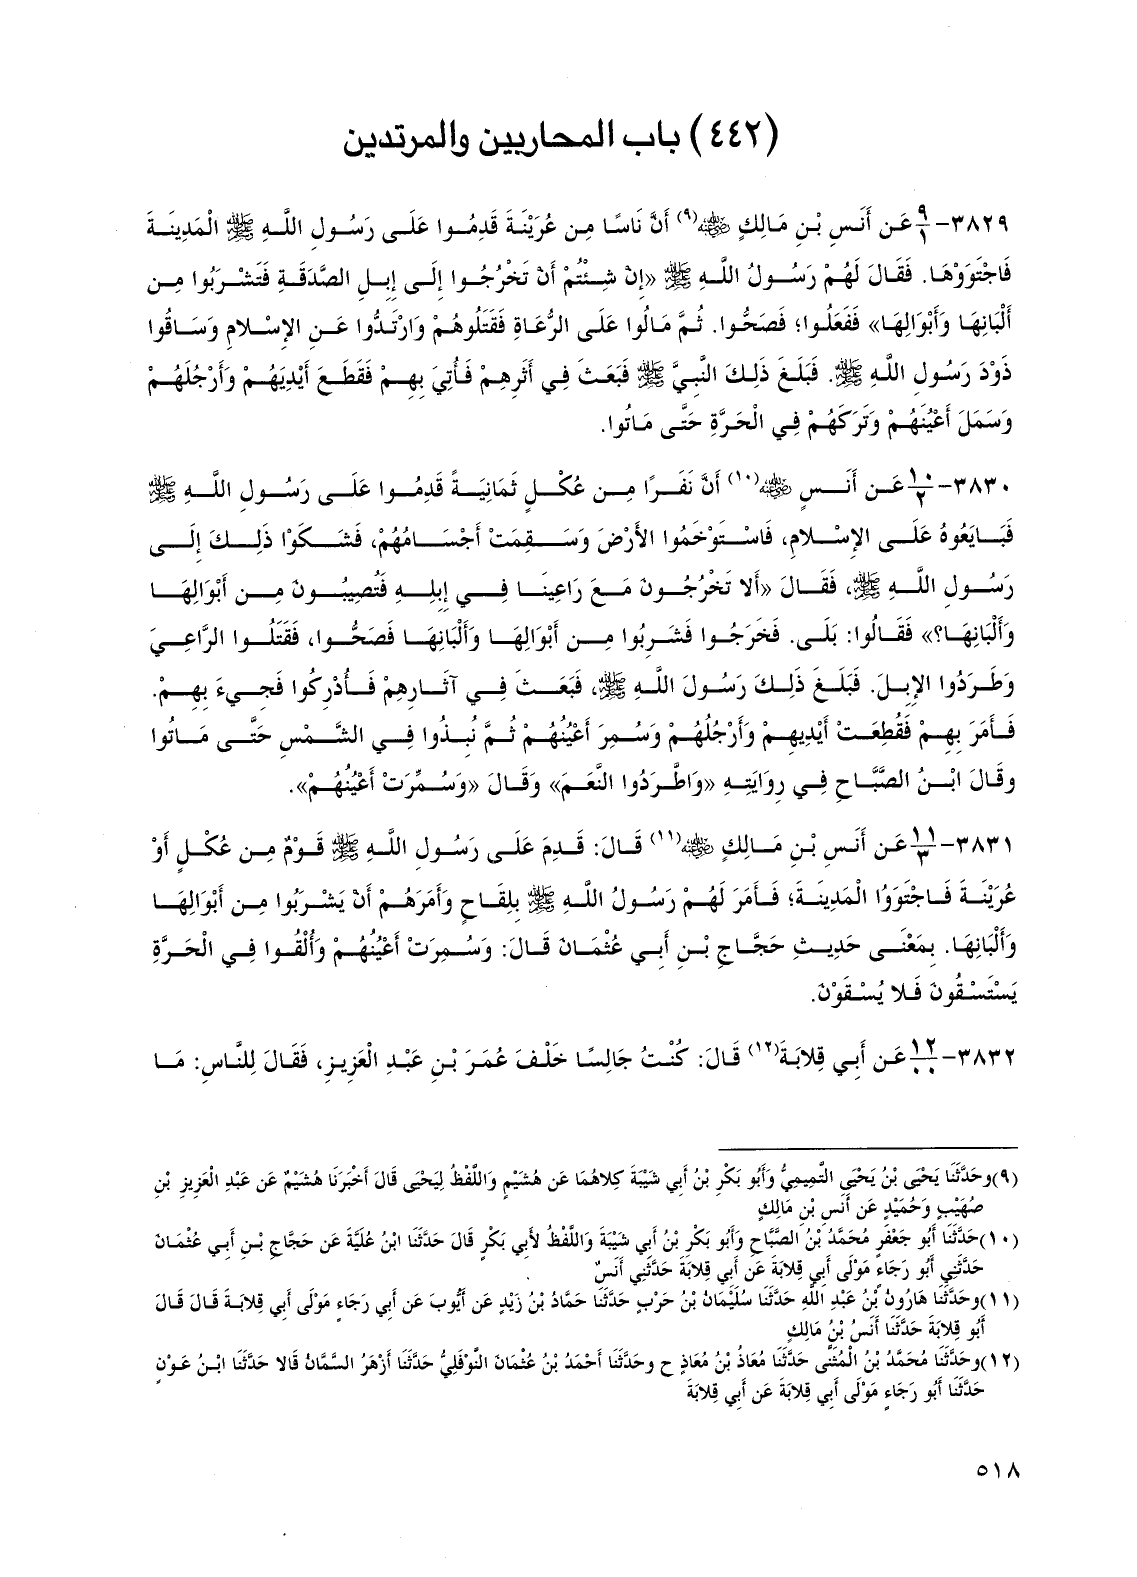 (٤٤٢) باب المحاربين والمرتدين
٣٨٢٩- ٩/١ عَن أَنَسِ بْنِ مَالِكٍ ﵁(٩) أَنَّ نَاسًا مِن عُرَيْنَةَ قَدِمُوا عَلَى رَسُولِ اللَّهِ ﷺ الْمَدِينَةَ
فَاجْتَوَوْهَا. فَقَالَ لَهُمْ رَسُولُ اللَّهِ ﷺ «إِنْ شِئْتُمْ أَنْ تَخْرُجُوا إِلَى إِبِلِ الصَّدَقَةِ فَتَشْرَبُوا مِن
أَلْبَانِهَا وَأَبْوَالِهَا» فَفَعَلُوا؛ فَصَحُّوا. ثُمَّ مَالُوا عَلَى الرُّعَاةِ فَقَتَلُوهُمْ وَارْتَدُّوا عَنِ الإِسْلامِ وَسَاقُوا
ذَوْدَ رَسُولِ اللَّهِ ﷺ. فَبَلَغَ ذَلِكَ النَّبِيَّ ﷺ فَبَعَثَ فِي أَثَرِهِمْ فَأُتِيَ بِهِمْ فَقَطَعَ أَيْدِيَهُمْ وَأَرْجُلَهُمْ
وَسَمَلَ أَعْيُنَهُمْ وَتَرَكَهُمْ فِي الْحَرَّةِ حَتَّى مَاتُوا.
٣٨٣٠- ١٠/٢ عَن أَنَسٍ ﵁(١٠) أَنَّ نَفَرًا مِن عُكْلٍ ثَمَانِيَةً قَدِمُوا عَلَى رَسُولِ اللَّهِ ﷺ
فَبَايَعُوهُ عَلَى الإِسْلامِ، فَاسْتَوْخَمُوا الأَرْضَ وَسَقِمَتْ أَجْسَامُهُمْ، فَشَكَوْا ذَلِكَ إِلَى
رَسُولِ اللَّهِ ﷺ، فَقَالَ «أَلا تَخْرُجُونَ مَعَ رَاعِينَا فِي إِبِلِهِ فَتُصِيبُونَ مِن أَبْوَالِهَا
وَأَلْبَانِهَا؟» فَقَالُوا: بَلَى. فَخَرَجُوا فَشَرِبُوا مِن أَبْوَالِهَا وَأَلْبَانِهَا فَصَحُّوا، فَقَتَلُوا الرَّاعِيَ
وَطَرَدُوا الإِبِلَ. فَبَلَغَ ذَلِكَ رَسُولَ اللَّهِ ﷺ، فَبَعَثَ فِي آثَارِهِمْ فَأُدْرِكُوا فَجِيءَ بِهِمْ.
فَأَمَرَ بِهِمْ فَقُطِعَتْ أَيْدِيهِمْ وَأَرْجُلُهُمْ وَسُمِرَ أَعْيُنُهُمْ ثُمَّ نُبِذُوا فِي الشَّمْسِ حَتَّى مَاتُوا
وقَالَ ابْنُ الصَّبَّاحِ فِي رِوَايَتِهِ «وَاطَّرَدُوا النَّعَمَ» وَقَالَ «وَسُمِّرَتْ أَعْيُنُهُمْ».
٣٨٣١- ١١/٣ عَن أَنَسِ بْنِ مَالِكٍ ﵁(١١) قَالَ: قَدِمَ عَلَى رَسُولِ اللَّهِ ﷺ قَوْمٌ مِن عُكْلٍ أَوْ
عُرَيْنَةَ فَاجْتَوَوُا الْمَدِينَةَ؛ فَأَمَرَ لَهُمْ رَسُولُ اللَّهِ ﷺ بِلِقَاحٍ وَأَمَرَهُمْ أَنْ يَشْرَبُوا مِن أَبْوَالِهَا
وَأَلْبَانِهَا. بِمَعْنَى حَدِيثِ حَجَّاجِ بْنِ أَبِي عُثْمَانَ قَالَ: وَسُمِرَتْ أَعْيُنُهُمْ وَأُلْقُوا فِي الْحَرَّةِ
يَسْتَسْقُونَ فَلا يُسْقَوْنَ.
٣٨٣٢- ١٢/٠٠ عَن أَبِي قِلابَةَ(١٢) قَالَ: كُنْتُ جَالِسًا خَلْفَ عُمَرَ بْنِ عَبْدِ الْعَزِيزِ، فَقَالَ لِلنَّاسِ: مَا
(٩)وحَدَّثَنَا يَحْيَى بْنُ يَحْيَى التَّمِيمِيُّ وَأَبُو بَكْرِ بْنُ أَبِي شَيْبَةَ كِلاهُمَا عَن هُشَيْمٍ وَاللَّفْظُ لِيَحْيَى قَالَ أَخْبَرَنَا هُشَيْمٌ عَن عَبْدِ الْعَزِيزِ بْنِ
صُهَيْبٍ وَحُمَيْدٍ عَن أَنَسِ بْنِ مَالِكٍ
(١٠)حَدَّثَنَا أَبُو جَعْفَرٍ مُحَمَّدُ بْنُ الصَّبَّاحِ وَأَبُو بَكْرِ بْنُ أَبِي شَيْبَةَ وَاللَّفْظُ لأَبِي بَكْرٍ قَالَ حَدَّثَنَا ابْنُ عُلَيَّةَ عَن حَجَّاجِ بْنِ أَبِي عُثْمَانَ
حَدَّثَنِي أَبُو رَجَاءٍ مَوْلَى أَبِي قِلابَةَ عَن أَبِي قِلابَةَ حَدَّثَنِي أَنَسٌ
(١١)وحَدَّثَنَا هَارُونُ بْنُ عَبْدِ اللَّهِ حَدَّثَنَا سُلَيْمَانُ بْنُ حَرْبٍ حَدَّثَنَا حَمَّادُ بْنُ زَيْدٍ عَن أَيُّوبَ عَن أَبِي رَجَاءٍ مَوْلَى أَبِي قِلابَةَ قَالَ قَالَ
أَبُو قِلابَةَ حَدَّثَنَا أَنَسُ بْنُ مَالِكٍ
(١٢)وحَدَّثَنَا مُحَمَّدُ بْنُ الْمُثَنَّى حَدَّثَنَا مُعَاذُ بْنُ مُعَاذٍ ح وحَدَّثَنَا أَحْمَدُ بْنُ عُثْمَانَ النَّوْفَلِيُّ حَدَّثَنَا أَزْهَرُ السَّمَّانُ قَالا حَدَّثَنَا ابْنُ عَوْنٍ
حَدَّثَنَا أَبُو رَجَاءٍ مَوْلَى أَبِي قِلابَةَ عَن أَبِي قِلابَةَ
٥١٨